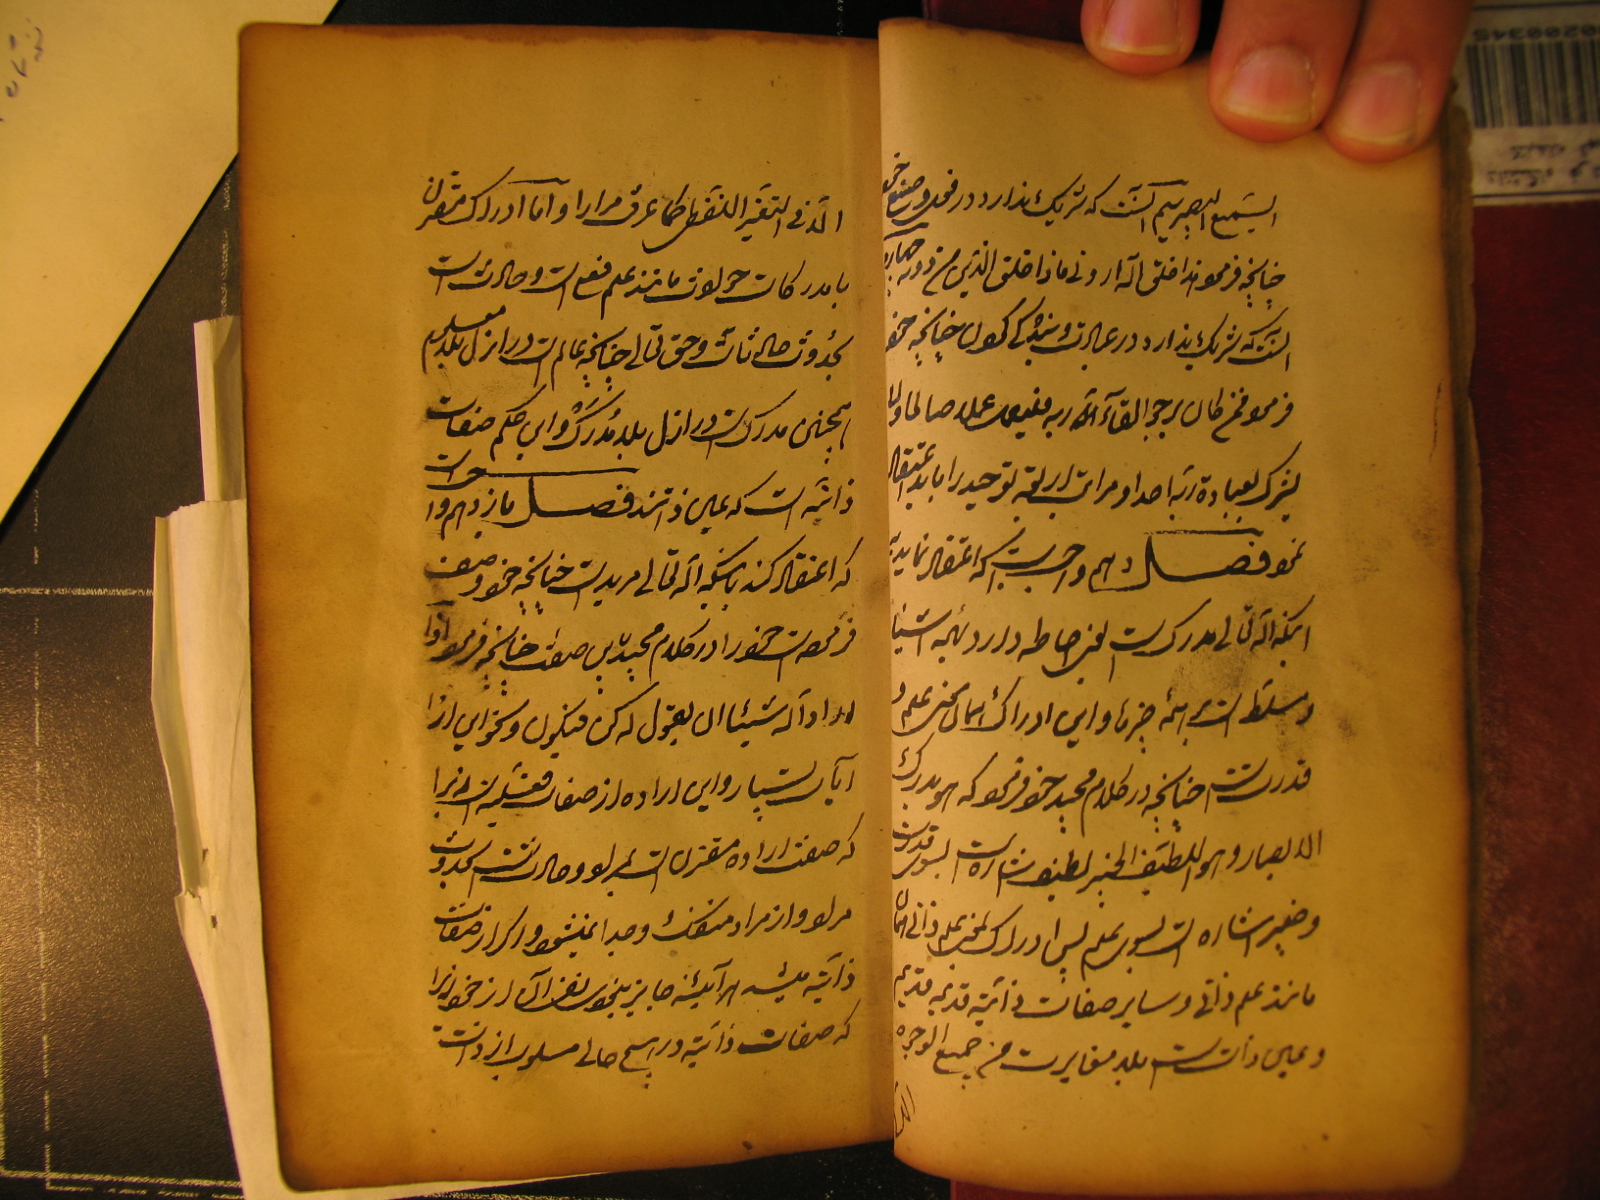 السمیع البصیر سیم آنست که شریک ندارد در فعل و صنع خود
چنانچه فرمود هذا خلق الله ارونی ماذا خلق الذین من دونه چهارم
آنست که شریک ندارد در عبادت و بندگی کردن چنانچه خود
فرموده فمن کان یرجوا لقاء الله ربه فلیعمل عملا صالحا ولا
یشرک بعبادة ربه احدا و مراتب اربعه توحید را باید اعتقاد
نمود فصل دهم واجب است که اعتقاد نماید به
اینکه الله تعالی مدرک است یعنی احاطه دارد بهمه اشیا
و مسلط است بر همه چیزها و این ادراک همان معنی علم و
قدرتست چنانچه در کلام مجید خود فرمود که هو یدرک
الابصار و هو اللطیف الخبیر لطیف اشاره است بسوی قدرت
و خبیر اشاره است بسوی علم پس ادراک یعنی علم ذاتی همان
مانند علم ذاتی و سایر صفات ذاتیه قدیمه قدیم
و عین ذاتست بلا مغایرت من جمیع الوجوه
الذی لا یتغیر الا بتغیر کما عرفت مرارا و اما ادراک مقترن
با مدرکات حوادث مانند علم فعل است و حادث است
بحدوث حادثات و حق تعالی چنانچه عالم است در ازل بلا معلوم
همچنین مدرک است در ازل بلا مدرک و این حکم صفات
ذاتیه است که عین ذاتند فصل یازدهم واجب است
که اعتقاد کند باینکه الله تعالی مرید است چنانچه خود وصف
فرموده است خود را در کلام مجید باین صفت چنانچه فرمود اذا
اراد الله شیئا ان یقول له کن فیکون و نحو این از
آیات بسیار و این اراده از صفات فعلیه است زیرا
که صفت اراده مقترن است بمراد و حادثست بحدوث
مراد و از مراد منفک و جدا نمیشود و اگر از صفات
ذاتیه میشد هر آینه جایز نبود نفی آن از خود زیرا
که صفات ذاتیه در هیچ حالی مسلوب از ذات